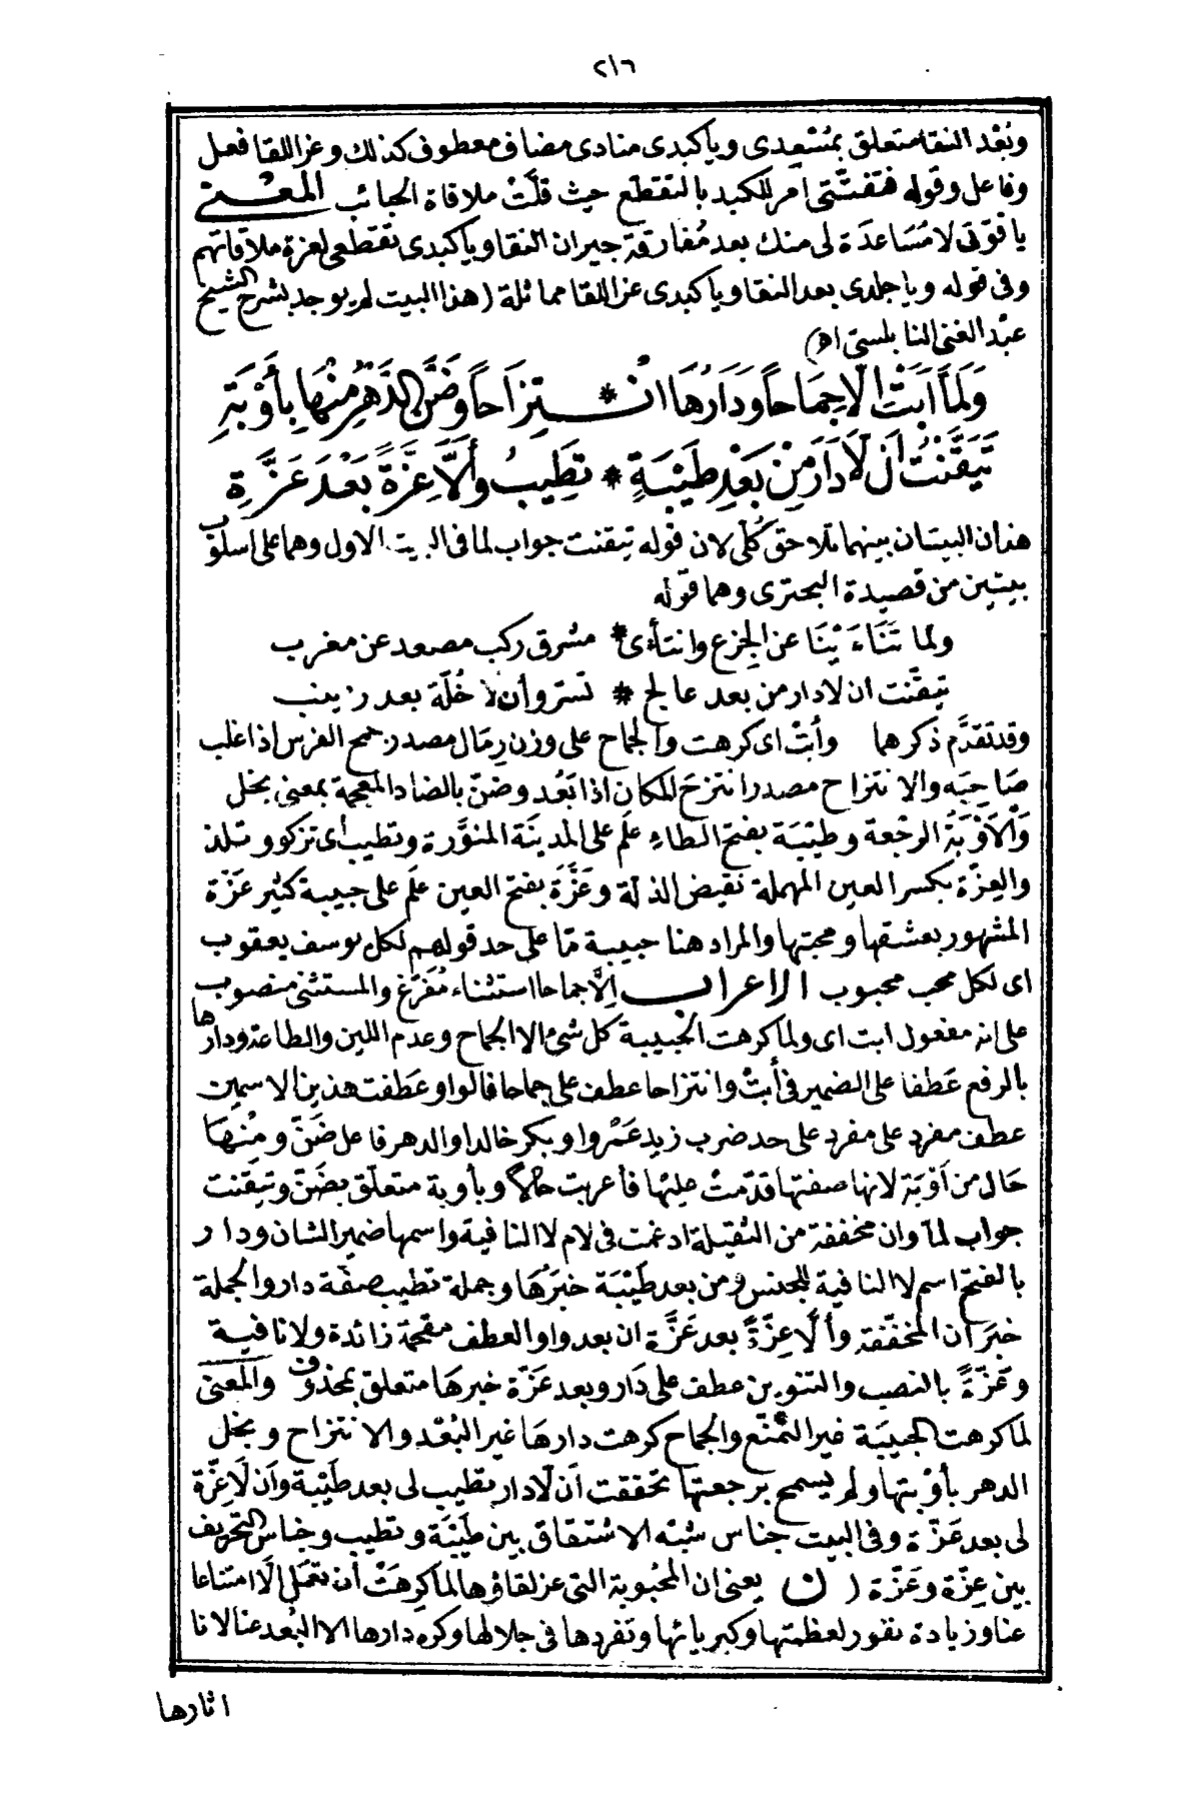 ٢١٦
وبُعْد النقا متعلق بمُسْعِدى ويا كبدى منادى مضاف معطوف كذلك وعز اللقا فعل
وفاعل وقوله فتفتّتى أمر للكبد بالتقطّع حيث قلّتْ ملاقاة الحبائب المعنى
يا قوتى لا مُسَاعدَة لى منك بعد مُفارقة جيران النقا ويا كبدى تقطعى لعزة ملاقاتهم
وفى قوله ويا جلدى بعد النقا ويا كبدى عز اللقا مماثلة (هذا البيت لم يوجد بشرح الشيخ
عبْد الغنى النابلسى اه)
وَلَمَّا أَبَتْ إِلَّا جِمَاحاً وَدَارُهَا انْـ * ـتِزَاحاً وَضَنَّ الدَّهْرُ مِنْهَا بِأَوْبَةِ
تَيَقَّنْتُ أَن لَا دَارَ مِنْ بَعْدِ طَيْبَةٍ * تَطِيبُ وأَلَّا عِزَّةً بَعْدَ عَزَّةِ
هذان البيتان بينهما تلاحق كُلّى لان قوله تيقنت جواب لما فى البيت الاول وهما على اسلوب
بيتين من قصيدة البحترى وهما قوله
ولما تَنَاءَيْنَا عن الجِزع وانتأى * مشرق ركب مصعد عن مغرب
تيقّنت ان لا دار من بعد عالج * تسر وأن لا خُلّة بعد زينب
وقد تقدَّم ذكرهما وأبتْ اى كرهت والجماح على وزن رِمَال مصدر جمح الفرس اذا غلب
صَاحِبَه والانتزاح مصدر انتزحَ المكان اذا بَعُد وضنّ بالضاد المعجمة بمعنى بخل
وَالأَوْبَةُ الرجعة وطَيْبَة بفتح الطاءِ علَم على المدينَة المنوَّرة وتطيب أى تزكو وتلذ
والعِزّة بكسر العين المهملة نقيض الذلة وعَزَّة بفتح العين علَم على حبيبة كثير عَزّة
المشهور بعشقها ومحبتها والمراد هنا حبيبة مّا على حد قولهم لكل يوسف يعقوب
اى لكل محب محبوب الاعراب إلّا جماحا استثناء مُفَرَّغ والمستثنى منصوب
على انه مفعول ابت اى ولما كرهت الحبيبة كل شىء الا الجماح وعدم اللين والطاعة ودارها
بالرفع عَطفا على الضمير فى أبتْ وانتزاحا عطف على جماحا فالواو عَطفت هذين الاسمين
عطف مفرد على مفرد على حد ضرب زيد عَمْروا وبكر خالدا والدهر فاعل ضَنّ ومِنْهَا
حَال من أَوْبَة لانها صفتها قدّمتْ عليْها فأعربت حَالاً وبأوبة متعلّق بضَنّ وتيقنت
جواب لمّا وان مخففة من الثقيلة ادغمت فى لام لا النافية واسمها ضمير الشان ودار
بالفتح اسم لا النافية للجنس ومن بعد طَيْبَة خبَرُهَا وجملة تطيب صفة دار والجملة
خبرَ ان المخفّفة وأَلَّا عِزّةً بعد عَزَّة ان بعد واو العطف مقحمة زائدة ولا نافية
وعِزّةً بالنصب والتنوين عطف على دَار وبعد عَزّة خبرهَا متعلق بمحذوف والمعنى
لما كرهت الحبيبَة غير التمنّع والجماح كرهت دارهَا غير البُعْد والانتزاح وبخل
الدهر بأوْبتها ولم يسمح برجعتها تحققت أن لا دار تطيب لى بعد طَيْبة وأن لَا عِزّة
لى بعد عَزّة وفى البيت جناس شبْه الاشتقاق بين طَيْبَة وتطيب وجناس التحريف
بين عِزّة وعَزّة ( ن يعنى ان المحْبوبة التى عز لقاؤها لما كرِهَتْ أن تقبل إلّا امتناعا
عنا وزيادة نفور لعظمتها وكبريائها وتفردها فى جلالها وكره دارها الا البُعد عنا لانا
اثارها